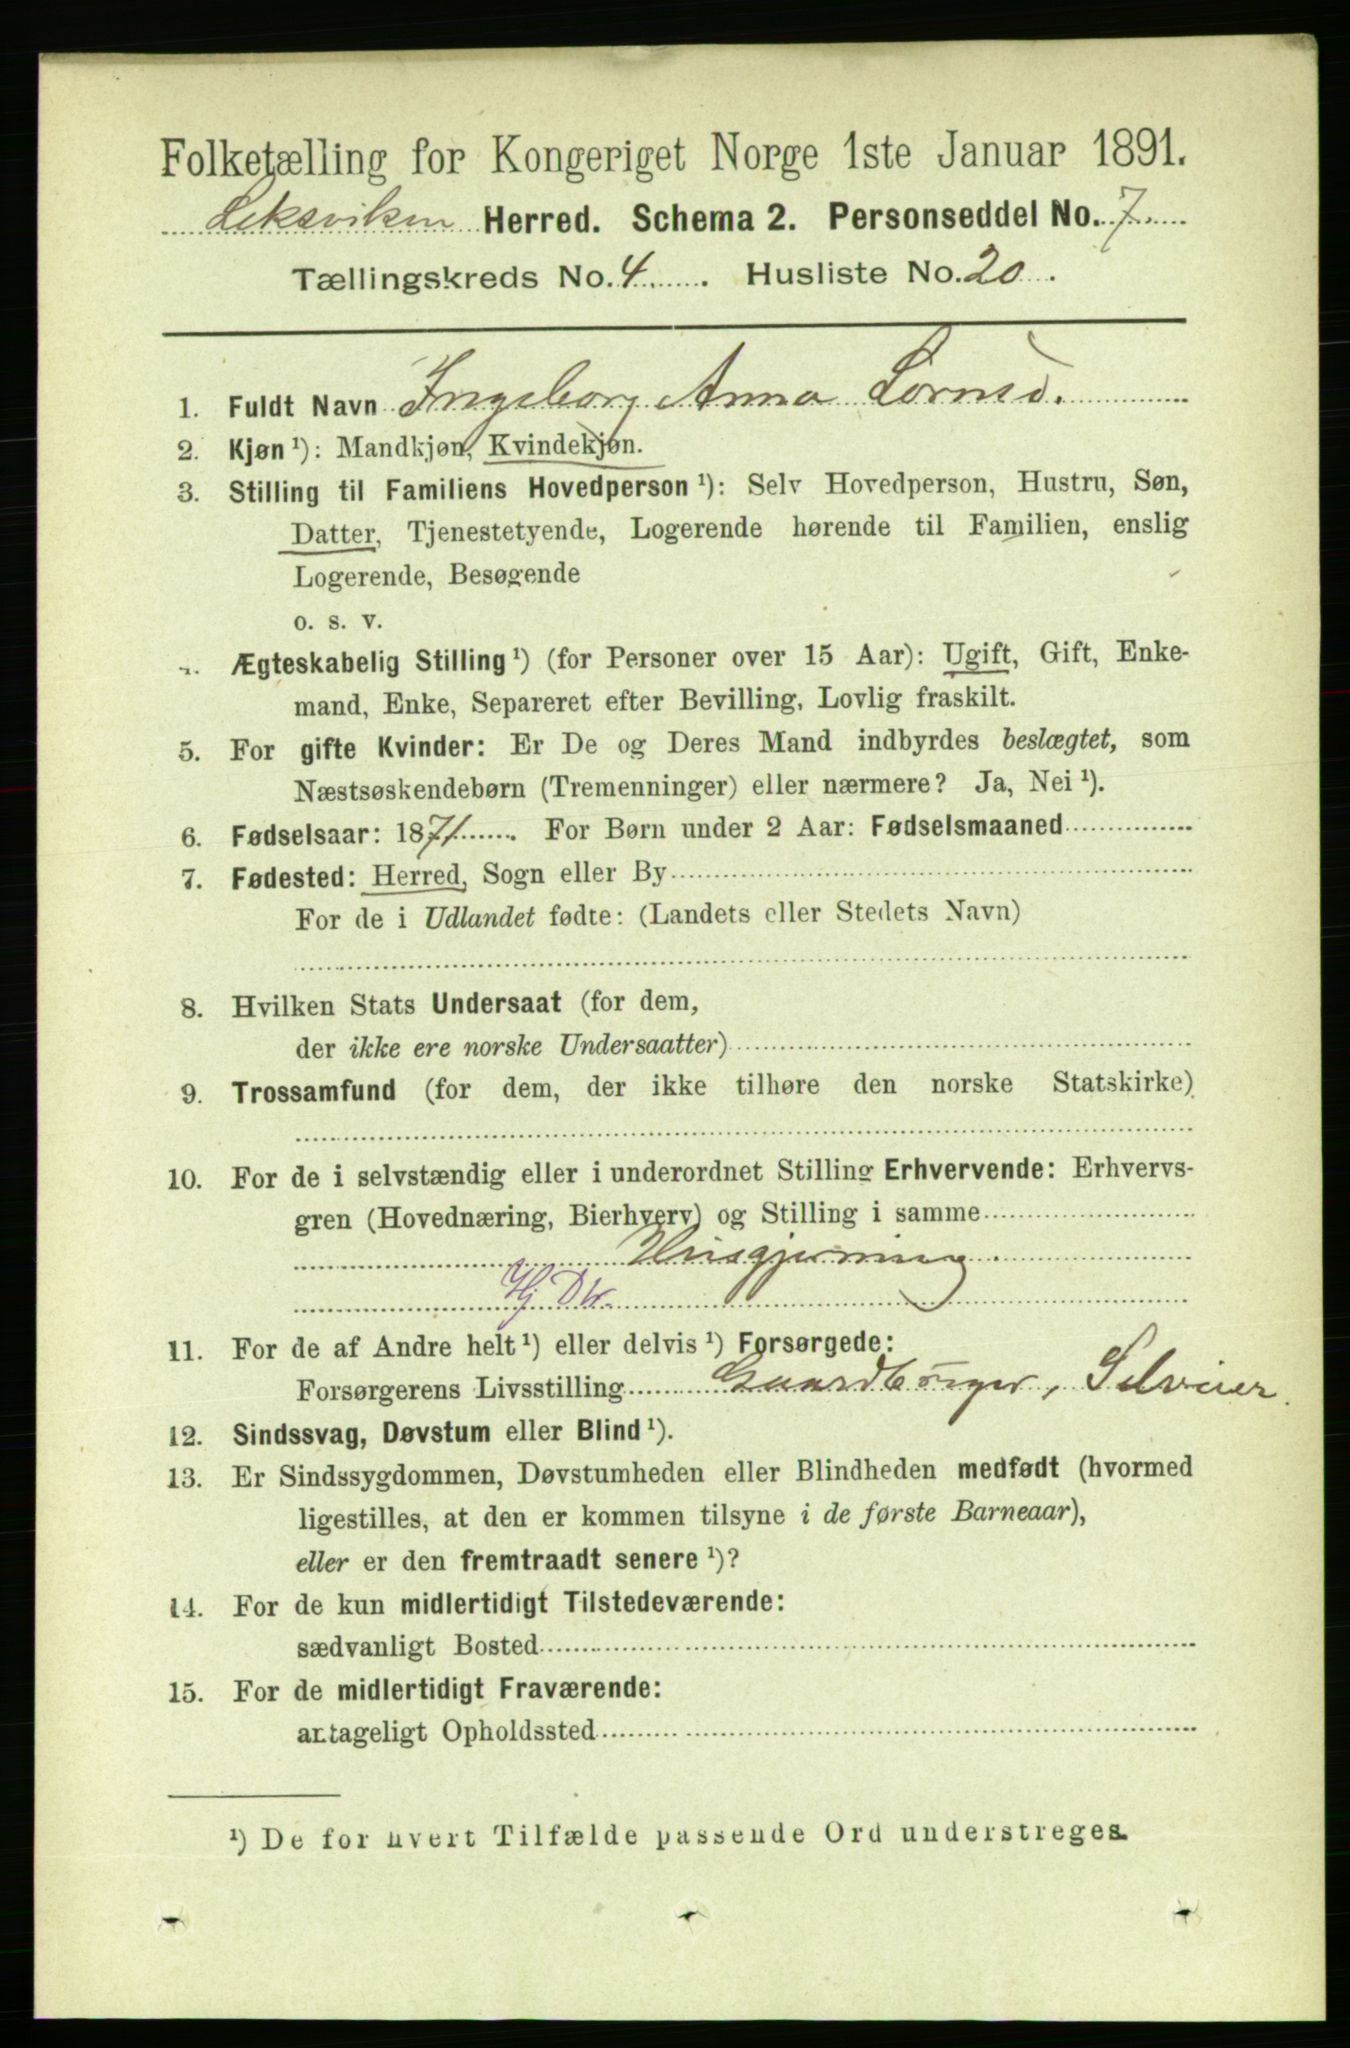 Folketælling for Kongeriget Norge 1ste Januar 1891.
Leksviken Herred. Schema 2. Personseddel No. 7.
Tællingskreds No. 4. Husliste No. 20.
1. Fuldt Navn Ingeborg Anna
2. Kjøn ¹): Mandkjøn, Kvindekjøn.
3. Stilling til Familiens Hovedperson ¹): Selv Hovedperson, Hustru, Søn,
Datter, Tjenestetyende, Logerende hørende til Familien, enslig
Logerende, Besøgende
o. s. v.
4. Ægteskabelig Stilling ¹) (for Personer over 15 Aar): Ugift, Gift, Enke-
mand, Enke, Separeret efter Bevilling, Lovlig fraskilt.
5. For gifte Kvinder: Er De og Deres Mand indbyrdes beslægtet, som
Næstsøskendebørn (Tremenninger) eller nærmere? Ja, Nei ¹).
6. Fødselsaar: 1871. For Børn under 2 Aar: Fødselsmaaned
7. Fødested: Herred, Sogn eller By
For de i Udlandet fødte: (Landets eller Stedets Navn)
8. Hvilken Stats Undersaat (for dem,
der ikke ere norske Undersaatter)
9. Trossamfund (for dem, der ikke tilhøre den norske Statskirke)
10. For de i selvstændig eller i underordnet Stilling Erhvervende: Erhvervs-
gren (Hovednæring, Bierhverv) og Stilling i samme
Husgjerning
Hj Dtr.
11. For de af Andre helt ¹) eller delvis ¹) Forsørgede:
Forsørgerens Livsstilling Gaardbruger, Selveier
12. Sindssvag, Døvstum eller Blind ¹).
13. Er Sindssygdommen, Døvstumheden eller Blindheden medfødt (hvormed
ligestilles, at den er kommen tilsyne i de første Barneaar),
eller er den fremtraadt senere ¹)?
14. For de kun midlertidigt Tilstedeværende:
sædvanligt Bosted
15. For de midlertidigt Fraværende:
antageligt Opholdssted
¹) De for hvert Tilfælde passende Ord understreges.